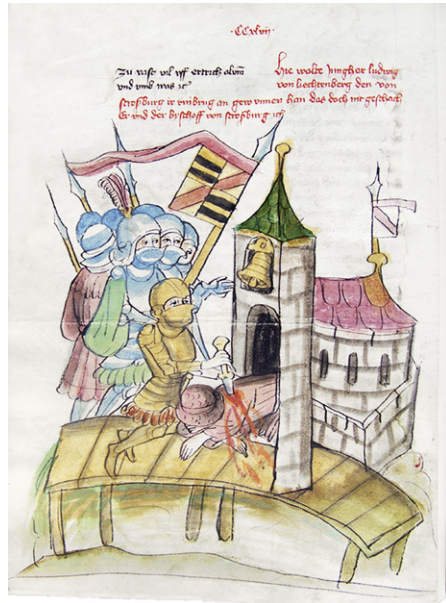 ·CCxlvii·
zu vast vil vff ertrich
vnd vmb was ir
Hie wolte Jungher ludwig
von liechtenberg den von
stroßburg ir rinbrug an gewinnen kan das doch nit geschach
Er vnd der byschoff von stroßburg ich